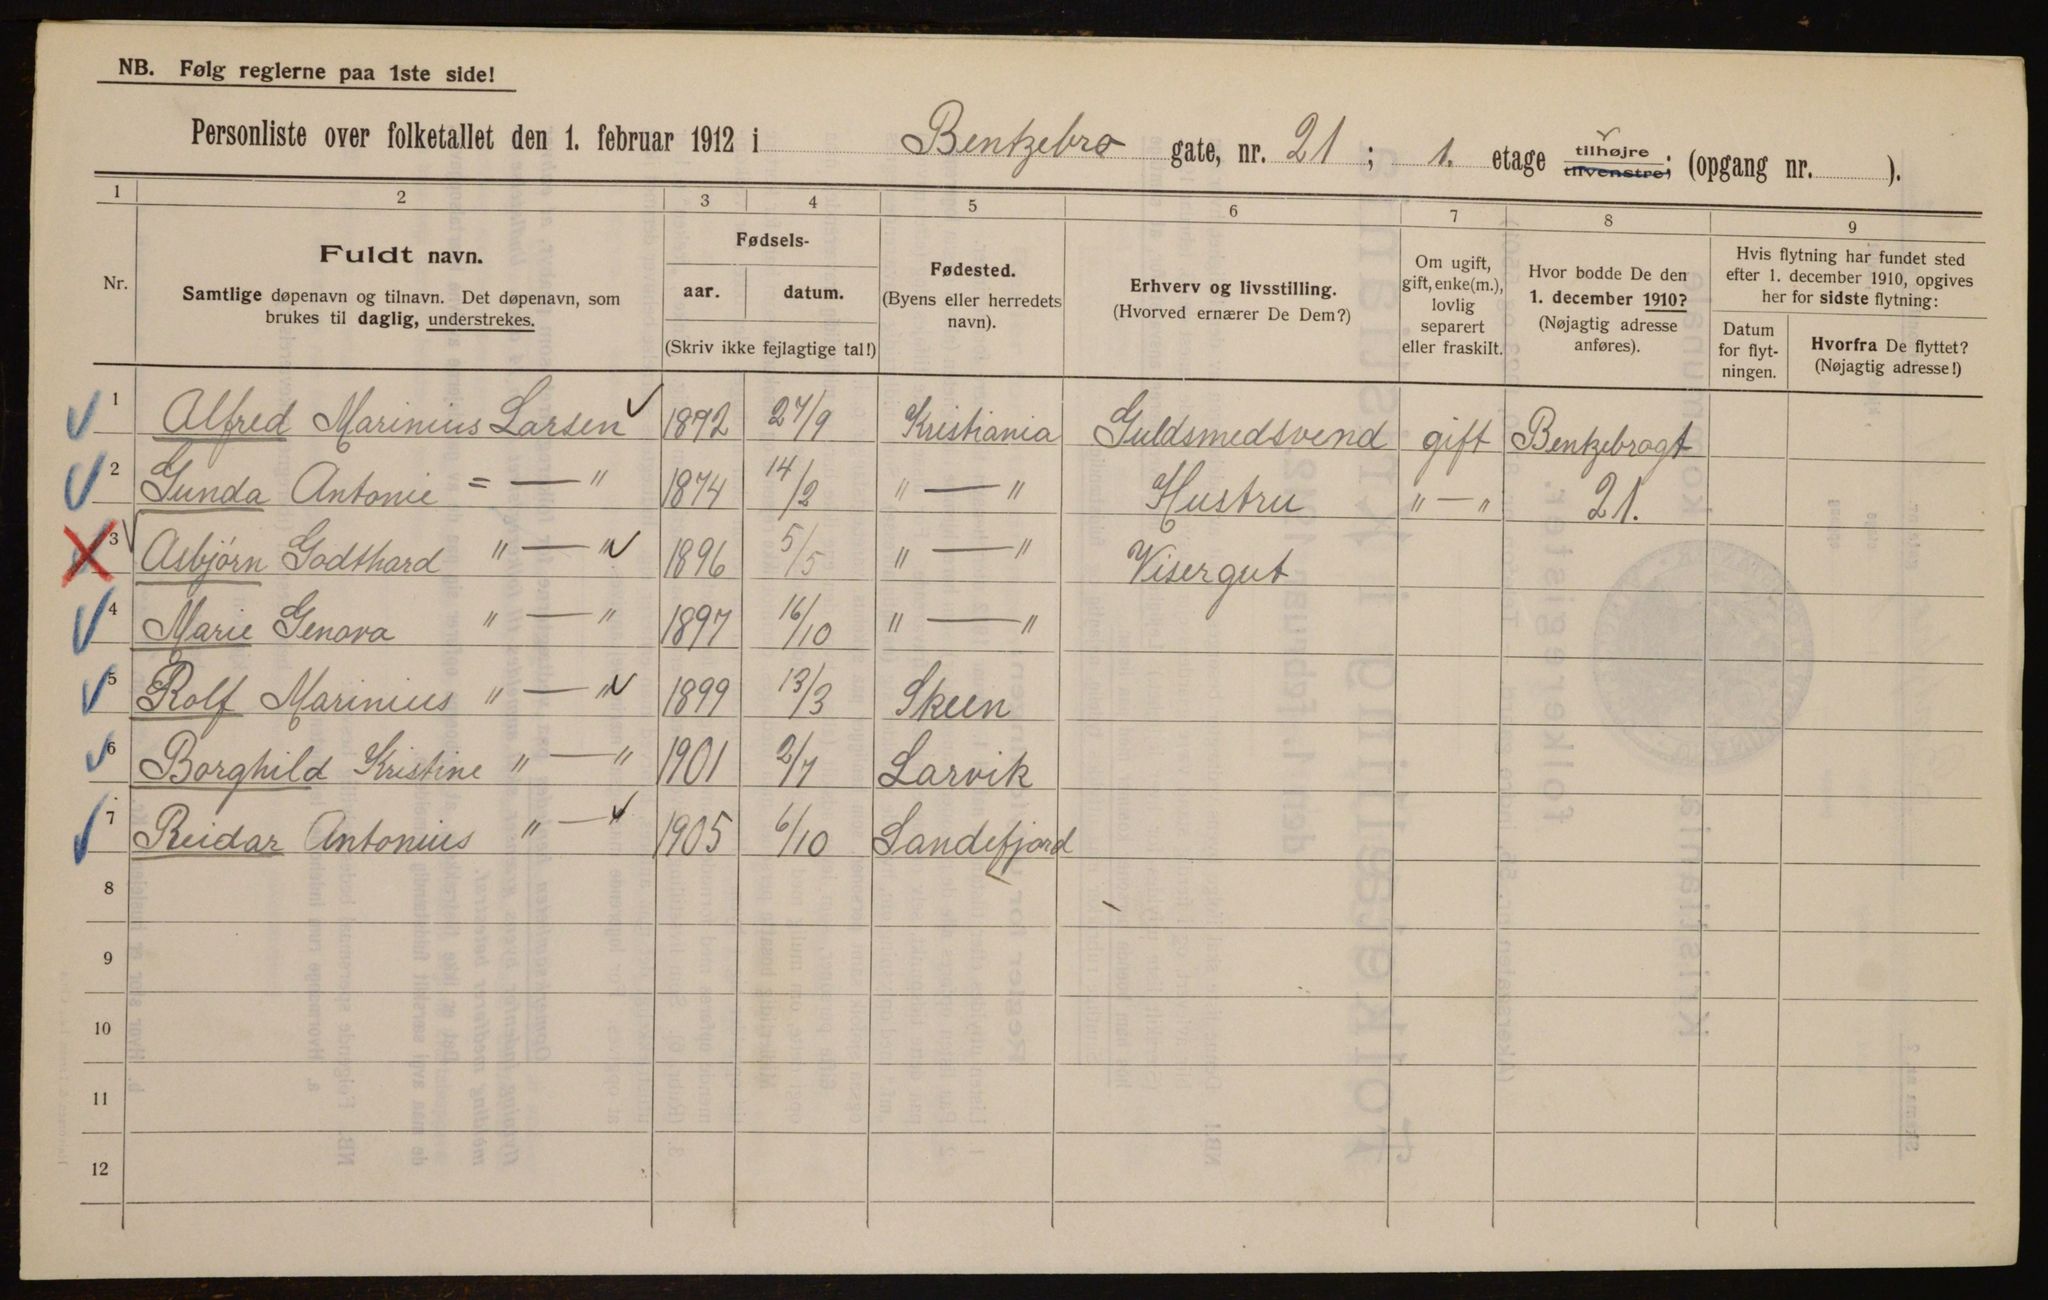 NB. Følg reglerne paa 1ste side!
Personliste over folketallet den 1. februar 1912 i Bentzebro gate, nr. 21 ; 1. etage tilhøjre tilvenstre; (opgang nr. ).
1 2 3 4 5 6 7 8 9
Nr.
Fuldt navn.
Samtlige døpenavn og tilnavn. Det døpenavn, som
brukes til daglig, understrekes.
Fødsels-
aar. datum.
(Skriv ikke fejlagtige tal!)
Fødested.
(Byens eller herredets
navn).
Erhverv og livsstilling.
(Hvorved ernærer De Dem?)
Om ugift,
gift, enke(m.),
lovlig
separert
eller fraskilt.
Hvor bodde De den
1. december 1910?
(Nøjagtig adresse
anføres).
Hvis flytning har fundet sted
efter 1. december 1910, opgives
her for sidste flytning:
Datum
for flyt-
ningen.
Hvorfra De flyttet?
(Nøjagtig adresse!)
1 Alfred Marinius Larsen 1872 27/9 Kristiania Guldsmedsvend gift Bentzebrogt
2 Gunda Antonie = — " 1874 14/2 " — " Hustru " — " 21.
3 Asbjørn Godthard " — " 1896 5/5 " — " Visergut
4 Marie Genova " — " 1897 16/10 " — "
5 Rolf Marinius " — " 1899 13/3 Skeen
6 Borghild Kristine " — " 1901 2/7 Larvik
7 Reidar Antonius " — " 1905 6/10 Sandefjord
8
9
10
11
12